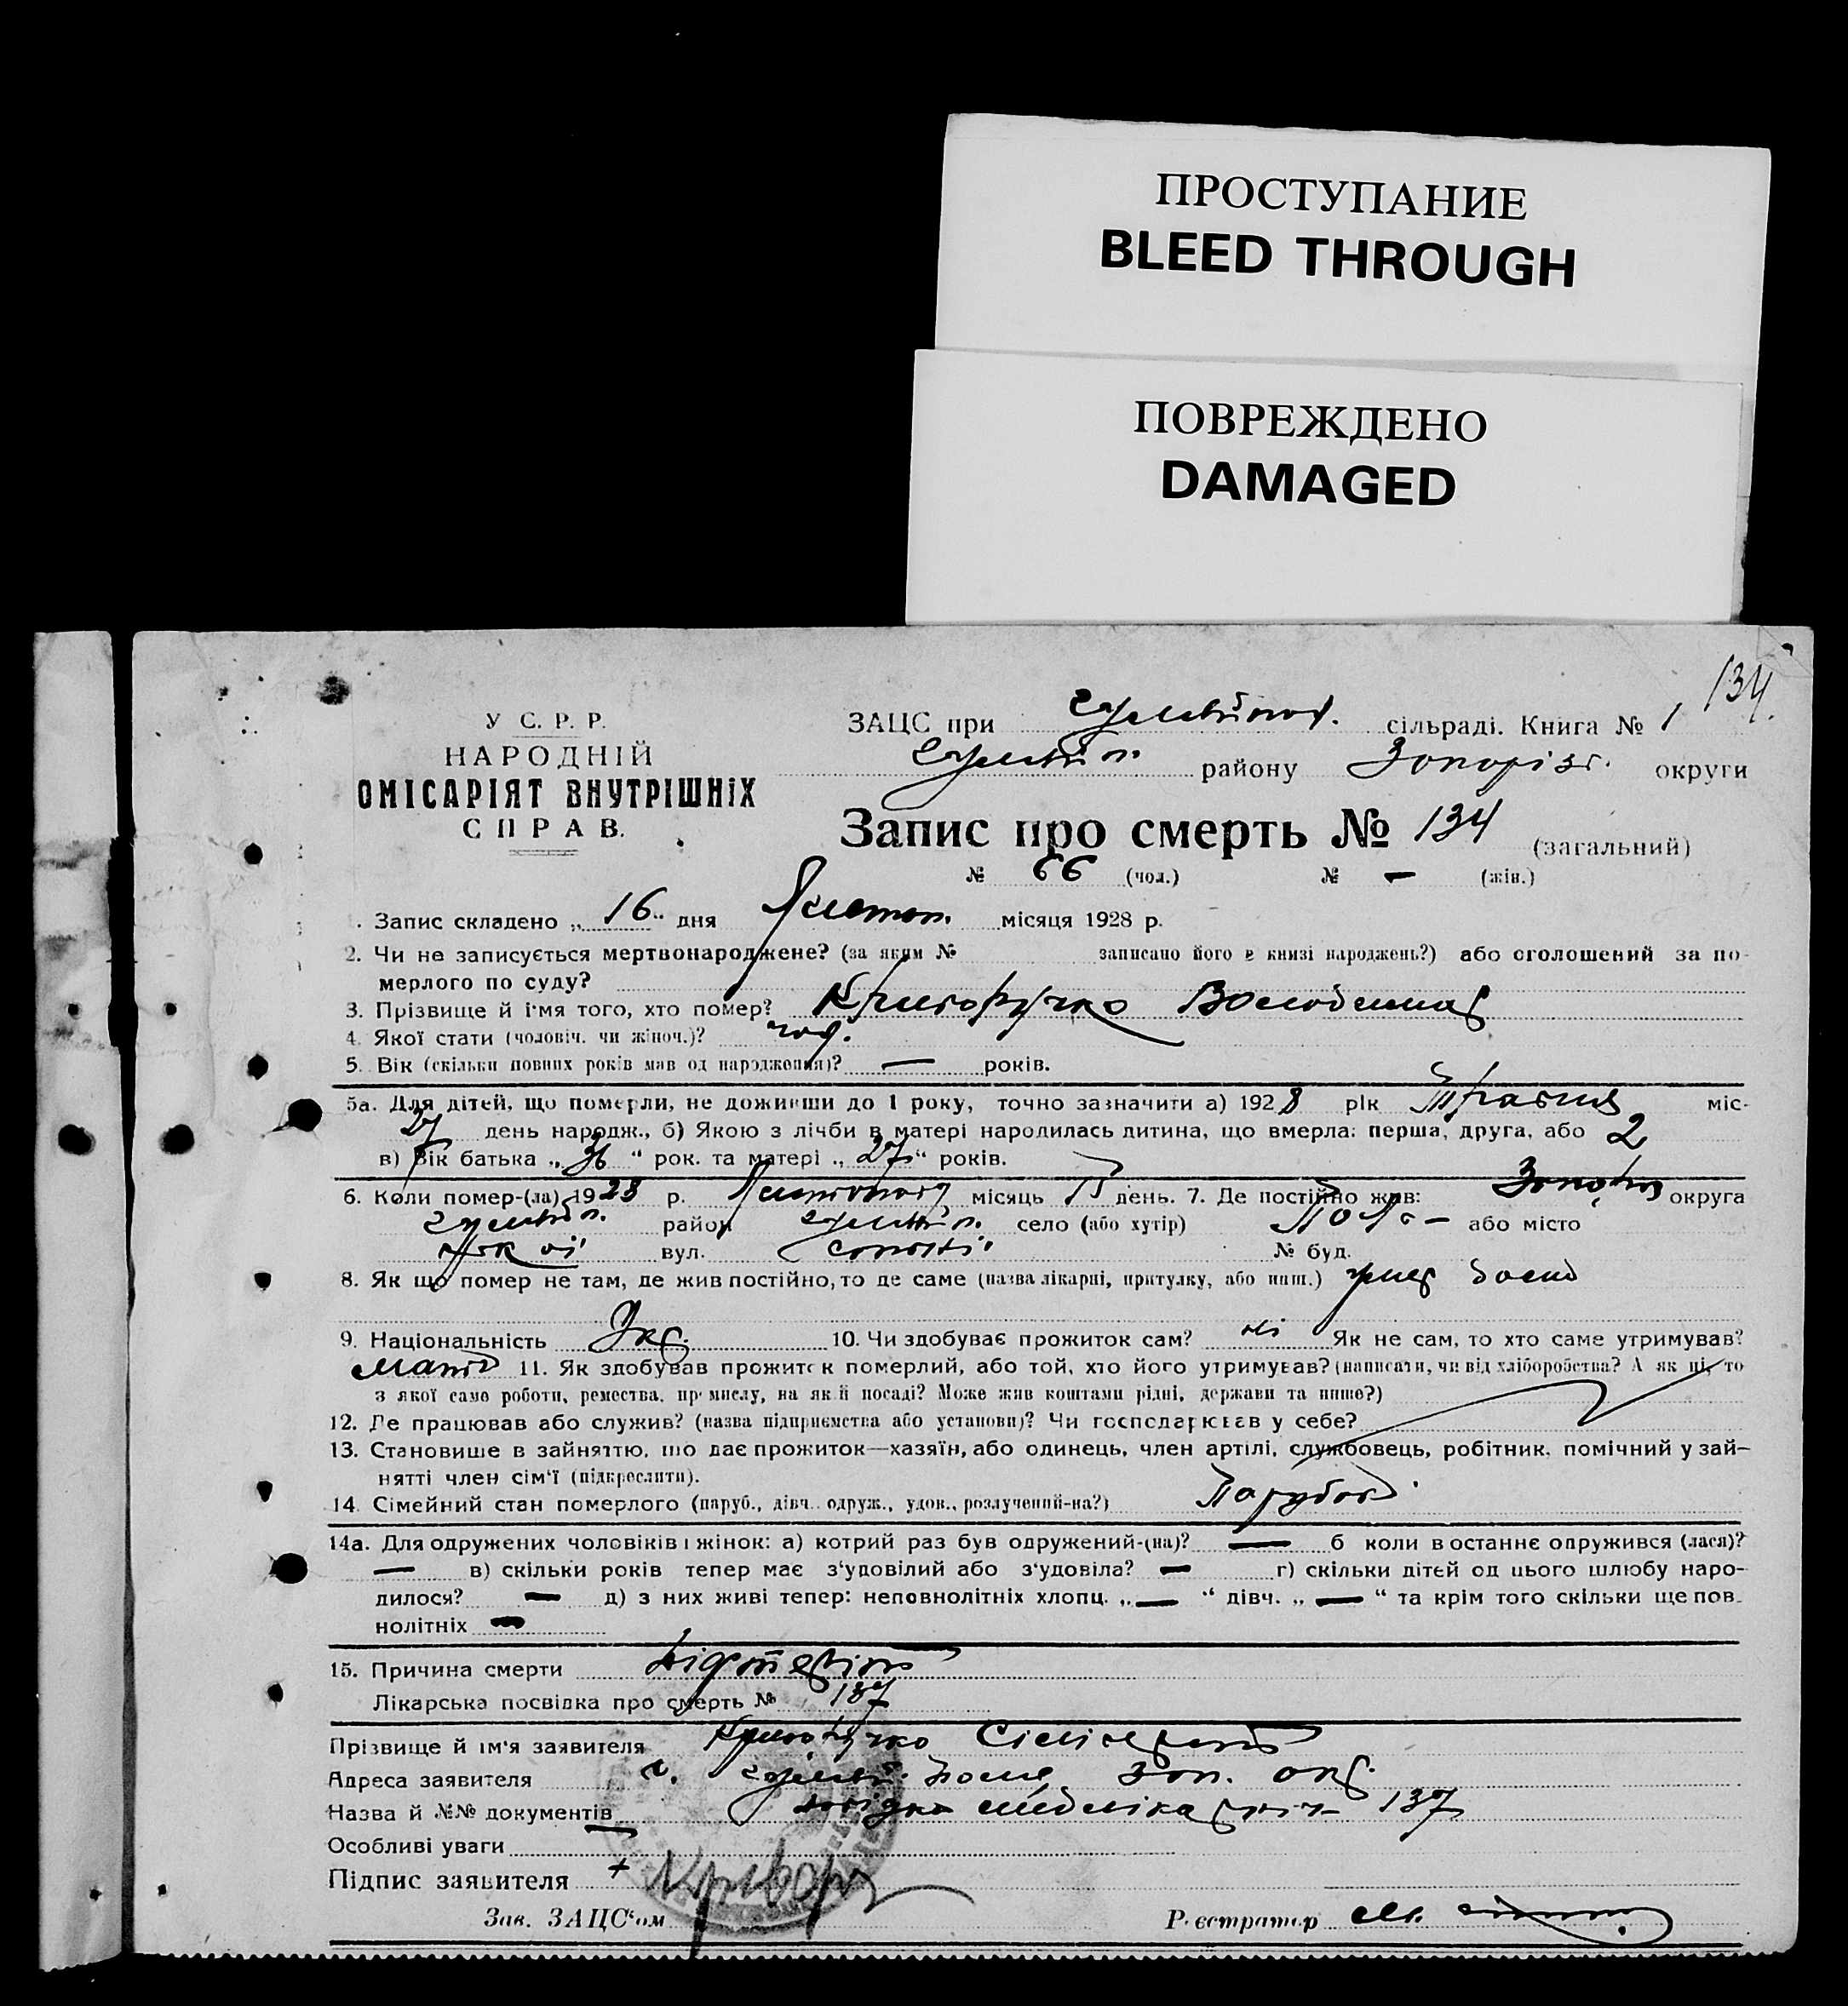 ПРОСТУПАНИЕ
BLEED THROUGH
ПОВРЕЖДЕНО
DAMAGED
134.
У С. Р. Р.
НАРОДНІЙ
ОМІСАРІЯТ ВНУТРІШНІХ
СПРАВ.
ЗАЦС при сільраді. Книга № 1
району Запоріз. округи
Запис про смерть № 134 (загальний)
№ 66 (чол.) № — (жін.)
. Запис складено „ 16 " дня Листоп. місяця 1928 р.
2. Чи не записується мертвонароджене? (за яким № записано його в книзі народжень?) або оголошений за по-
мерлого по суду?
3. Прізвище й ім'я того, хто помер? Криворучко Володимир
4. Якої стати (чоловіч. чи жіноч.)? чол.
5. Вік (скільки повних років мав од народження)? — років.
5а. Для дітей, що померли, не доживши до 1 року, точно зазначити а) 1928 рік Травня міс-
27 день народж., б) Якою з лічби в матері народилась дитина, що вмерла: перша, друга, або 2
в) Вік батька „ 36 " рок. та матері „ 27 " років.
6. Коли помер-(ла) 1928 р. Листопад місяць 15 день. 7. Де постійно жив: округа
район село (або хутір) або місто
вул. № буд.
8. Як що помер не там, де жив постійно, то де саме (назва лікарні, притулку, або инш.)
9. Національність Укр. 10. Чи здобуває прожиток сам? ні Як не сам, то хто саме утримував?
Мати 11. Як здобував прожиток померлий, або той, хто його утримував? (написати, чи від хліборобства? А як ні, то
з якої само роботи, ремества, промислу, на якій посаді? Може жив коштами рідні, держави та инше?)
12. Де працював або служив? (назва підприємства або установи)? Чи господарював у себе?
13. Становище в зайняттю, що дає прожиток—хазяїн, або одинець, член артілі, службовець, робітник, помічний у зай-
нятті член сім'ї (підкреслити).
14. Сімейний стан померлого (паруб., дівч. одруж., удов., розлучений-на?) Парубок
14а. Для одружених чоловіків і жінок: а) котрий раз був одружений-(на)? — б коли в останнє одружився (лася)?
— в) скільки років тепер має з'удовілий або з'удовіла? — г) скільки дітей од цього шлюбу наро-
дилося? — д) з них живі тепер: неповнолітніх хлопц. „ — " дівч. „ — " та крім того скільки ще пов-
нолітніх —
15. Причина смерти
Лікарська посвідка про смерть № 137
Прізвище й ім'я заявителя Криворучко
Адреса заявителя с. Зап. окр.
Назва й №№ документів 137
Особливі уваги
Підпис заявителя +
Зав. ЗАЦС'ом Реєстратор